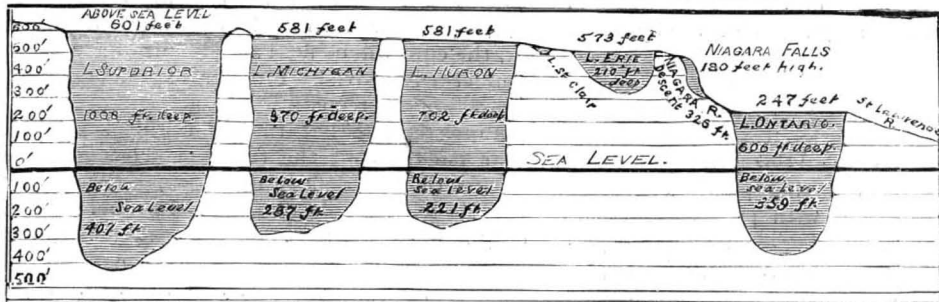 ABOVE SEA LEVEL
601 feet
581 feet
581 feet
573 feet
NIAGARA FALLS
180 feet high.
247 feet
St Lawrence R.
600'
500'
400'
300'
200'
100'
0'
100'
200'
300'
400'
500'
L. SUPERIOR
1008 ft. deep.
Below
Sea Level
407 ft
L. MICHIGAN
870 ft deep.
Below
Sea Level
287 ft
L. HURON
702 ft deep
Below
Sea Level
221 ft
L. St. Clair
L. ERIE
210 ft
deep
NIAGARA R.
Descent 326 ft.
L. ONTARIO.
606 ft deep.
Below
sea Level
359 ft
SEA LEVEL.